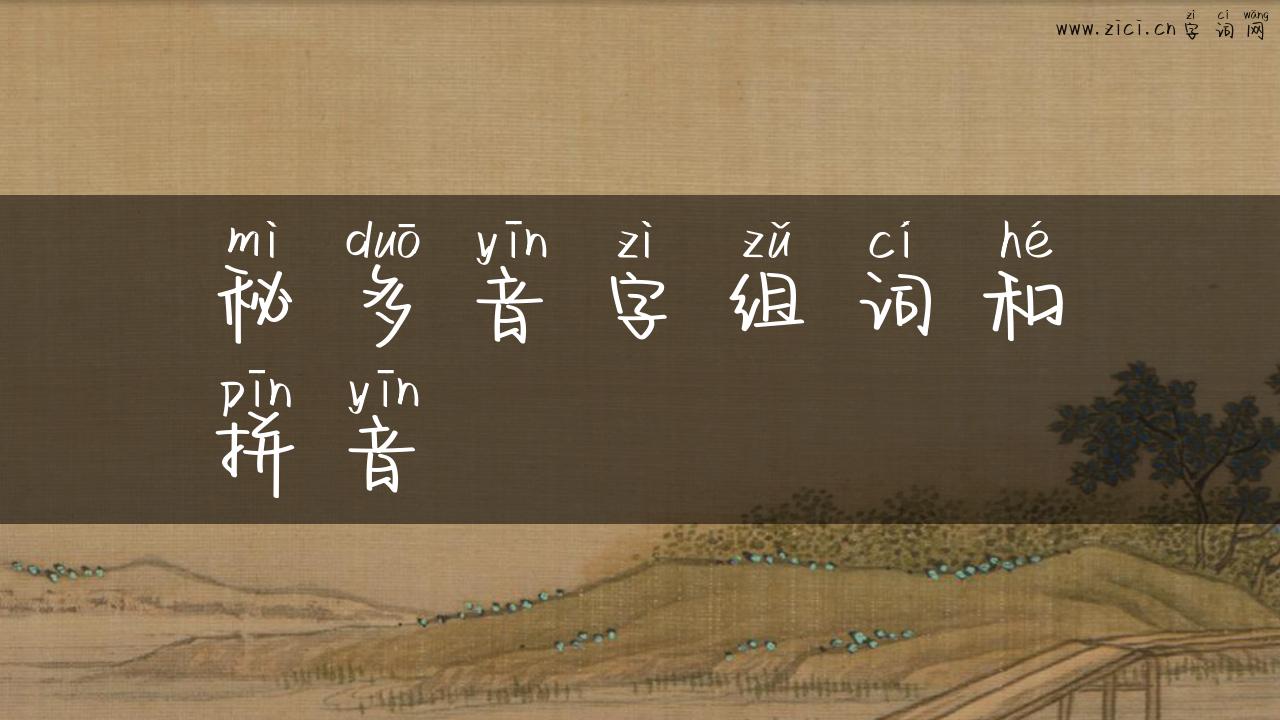 zì cí wǎng
www.zici.cn字词网
mì duō yīn zì zǔ cí hé
秘多音字组词和
pīn yīn
拼音